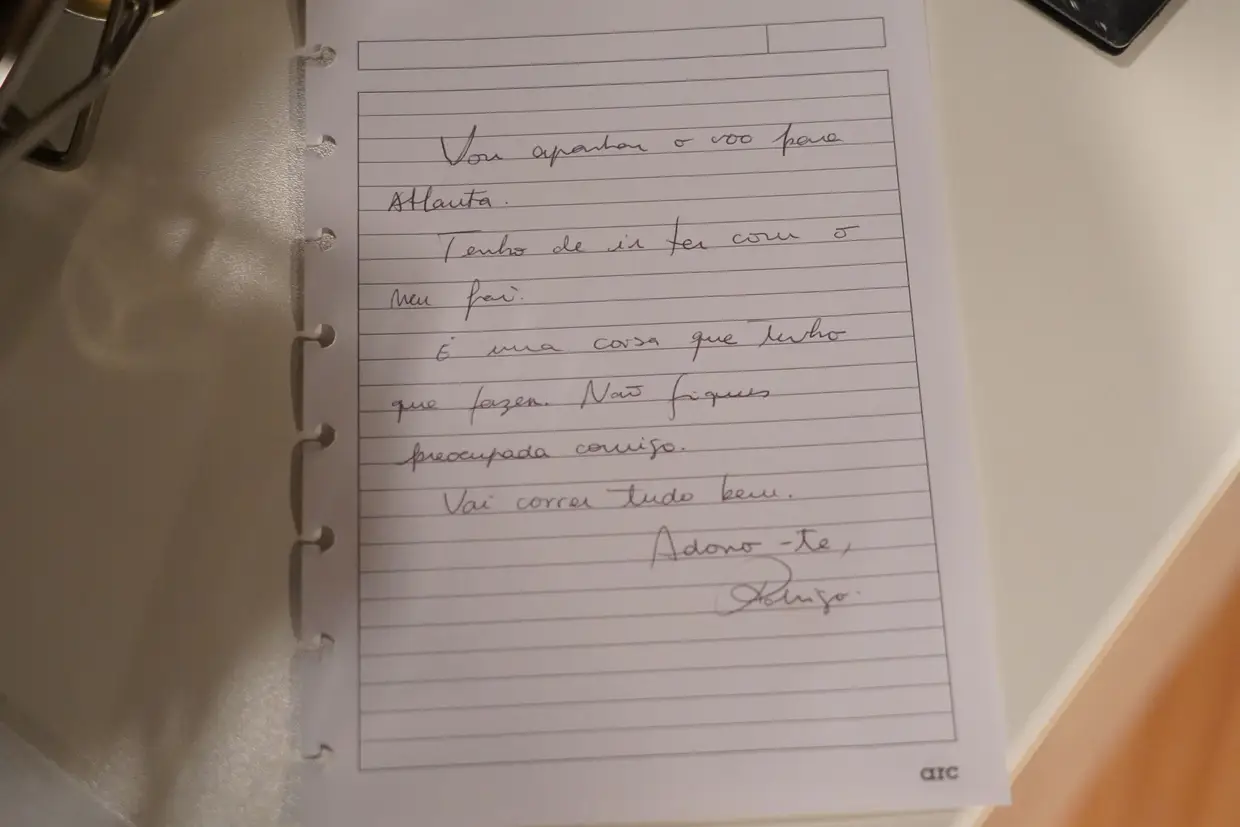 Vou apanhar o voo para
Atlanta.
Tenho de ir ter com o
meu pai.
É uma coisa que tenho
que fazer. Não fiques
preocupada comigo.
Vai correr tudo bem.
Adoro-te,
Rodrigo.
arc